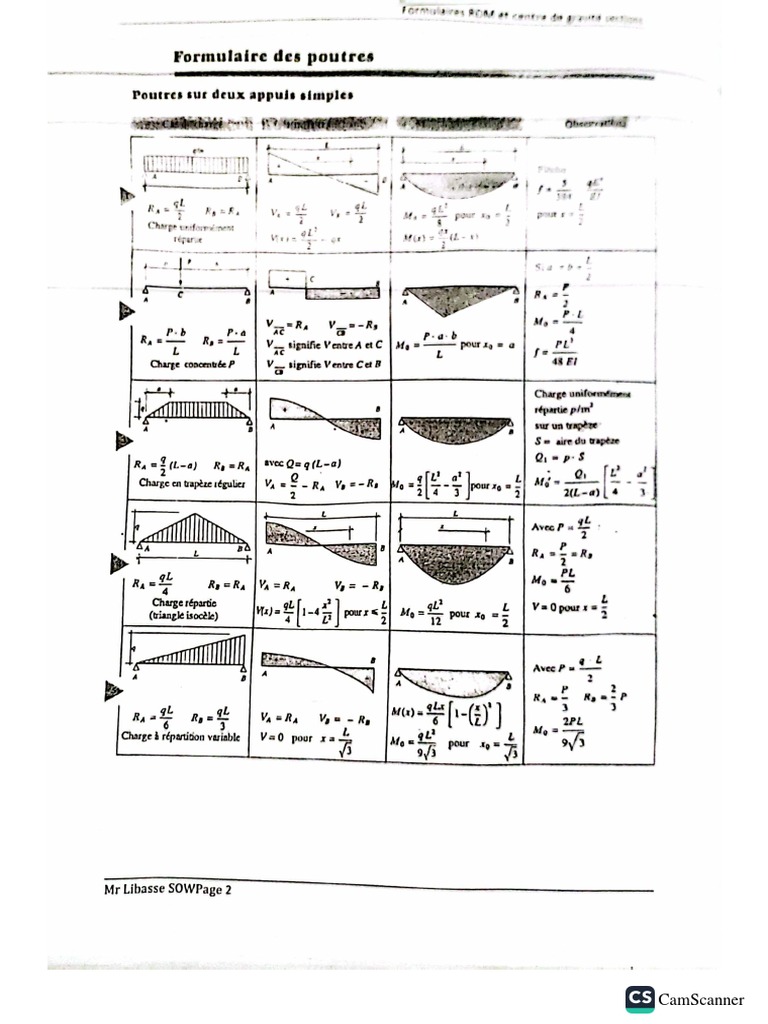 Formulaires RDM et centre de gravité sections
Formulaire des poutres
Poutres sur deux appuis simples
Cas de charge
Observations
L
x
A
B
R_A = qL/2 R_B = R_A
Charge uniformément
répartie
V_A = qL/2
M_0 = qL²/8 pour x_0 = L/2
M(x) = qx/2 (L - x)
pour x = L/2
A
C
B
R_A = P · b/L R_B = P · a/L
Charge concentrée P
C
A
B
V_AC = R_A V_CB = - R_B
V_AC signifie V entre A et C
V_CB signifie V entre C et B
A
B
M_0 = P · a · b/L pour x_0 = a
Si a = b = L/2
R_A = P/2
M_0 = P · L/4
f = PL³/48 EI
a a
q
A B
R_A = q/2 (L-a) R_B = R_A
Charge en trapèze régulier
B
A
avec Q = q (L-a)
V_A = Q/2 - R_A V_B = - R_B
A B
M_0 = q/2 [L²/4 - a²/3] pour x_0 = L/2
Charge uniformément
répartie p/m²
sur un trapèze
S = aire du trapèze
Q_1 = p · S
M_0 = Q_1/2(L-a) [L²/4 - a²/3]
q
A B
L
R_A = qL/4 R_B = R_A
Charge répartie
(triangle isocèle)
L
x
A B
V_A = R_A V_B = - R_B
V(x) = qL/4 [1-4 x²/L²] pour x ≤ L/2
L
A B
M_0 = qL²/12 pour x_0 = L/2
Avec P = qL/2
R_A = P/2 = R_B
M_0 = PL/6
V = 0 pour x = L/2
q
A B
R_A = qL/6 R_B = qL/3
Charge à répartition variable
B
A
V_A = R_A V_B = - R_B
V = 0 pour x = L/√3
A B
M(x) = qLx/6 [1-(x/L)²]
M_0 = qL²/9√3 pour x_0 = L/√3
Avec P = q · L/2
R_A = P/3 R_B = 2/3 P
M_0 = 2PL/9√3
Mr Libasse SOWPage 2
CS CamScanner